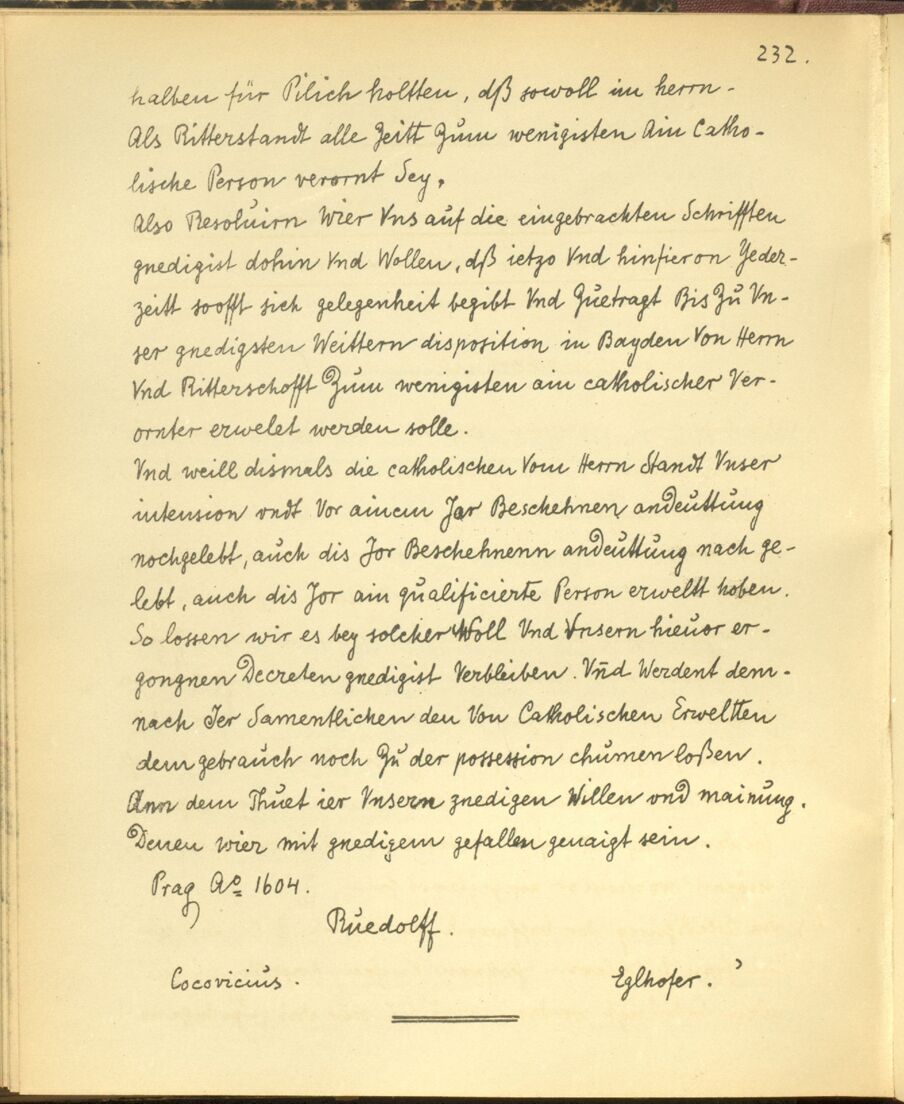 232.
halben für Pilich holtten, dß sowoll im herrn-
Als Ritterstandt alle Zeitt Zum wenigisten Ain Catho-
lische Person verornt Sey.
Also Resoluirn Wier Vns auf die eingebrachten Schrifften
gnedigist dohin Vnd Wollen, dß ietzo Vnd hinfieron Yeder-
zeitt soofft sich gelegenheit begibt Vnd Zuetragt Bis Zu Vn-
ser gnedigsten Weittern disposition in Bayden Von Herrn
Vnd Ritterschofft Zum wenigisten ain catholischer Ver-
ornter erwelet werden solle.
Vnd weill dismals die catholischen Vom Herrn Standt Vnser
intension vndt Vor ainem Jar Beschehnen andeuttung
nochgelebt, auch dis Jor Beschehnenn andeuttung nach ge-
lebt, auch dis Jor ain qualificierte Person erweltt hoben.
So lossen wir es bey solcher Woll Vnd Vnsern hieuor er-
gongnen Decreten gnedigist Verbleiben. Vn̄d Werdent dem-
nach Ier Samentlichen den Von Catholischen Erweltten
dem gebrauch noch Zu der possession chumen loßen.
Ann dem Thuet ier Vnsern gnedigen Willen vnd mainung.
Denen wier mit gnedigem gefallen genaigt sein.
Prag Ao 1604.
Ruedolff.
Cocovicius.
Eglhofer.